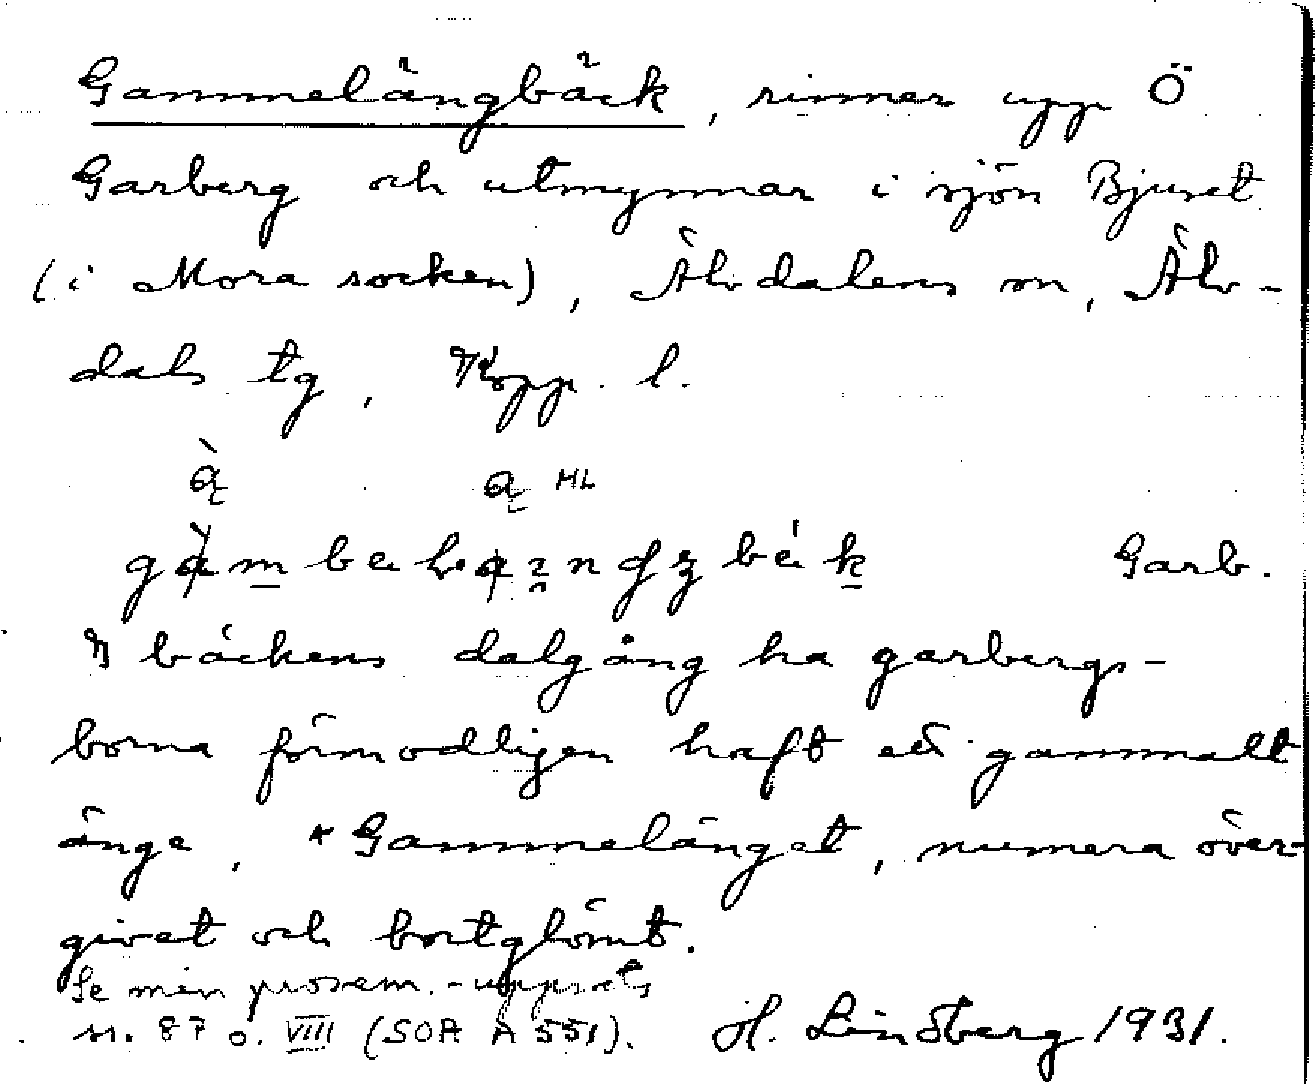 Gammelängbäck, rinner upp Ö
Garberg och utmynnar i sjön Bjuret
(i Mora socken), Älvdalens sn, Älv-
dals tg, Kopp. l.
ą̀ ą HL
Garb.
I bäckens dalgång ha garbergs-
borna förmodligen haft ett gammalt
änge, *Gammelänget, numera över-
givet och bortglömt.
Se min prosem.-uppsats
s. 87 o. VIII (SOA A 551). H. Lindberg 1931.